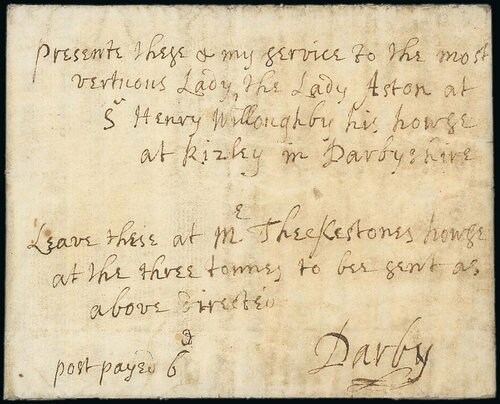 Presente these & my service to the most
vertuous Lady, the Lady Aston at
Sr Henry Willoughby his howse
at Rizley in Darbyshire
Leave these at Mr Theckestones howse
at the three tonnes to bee sent as
above directed
post payed 6d
Darby